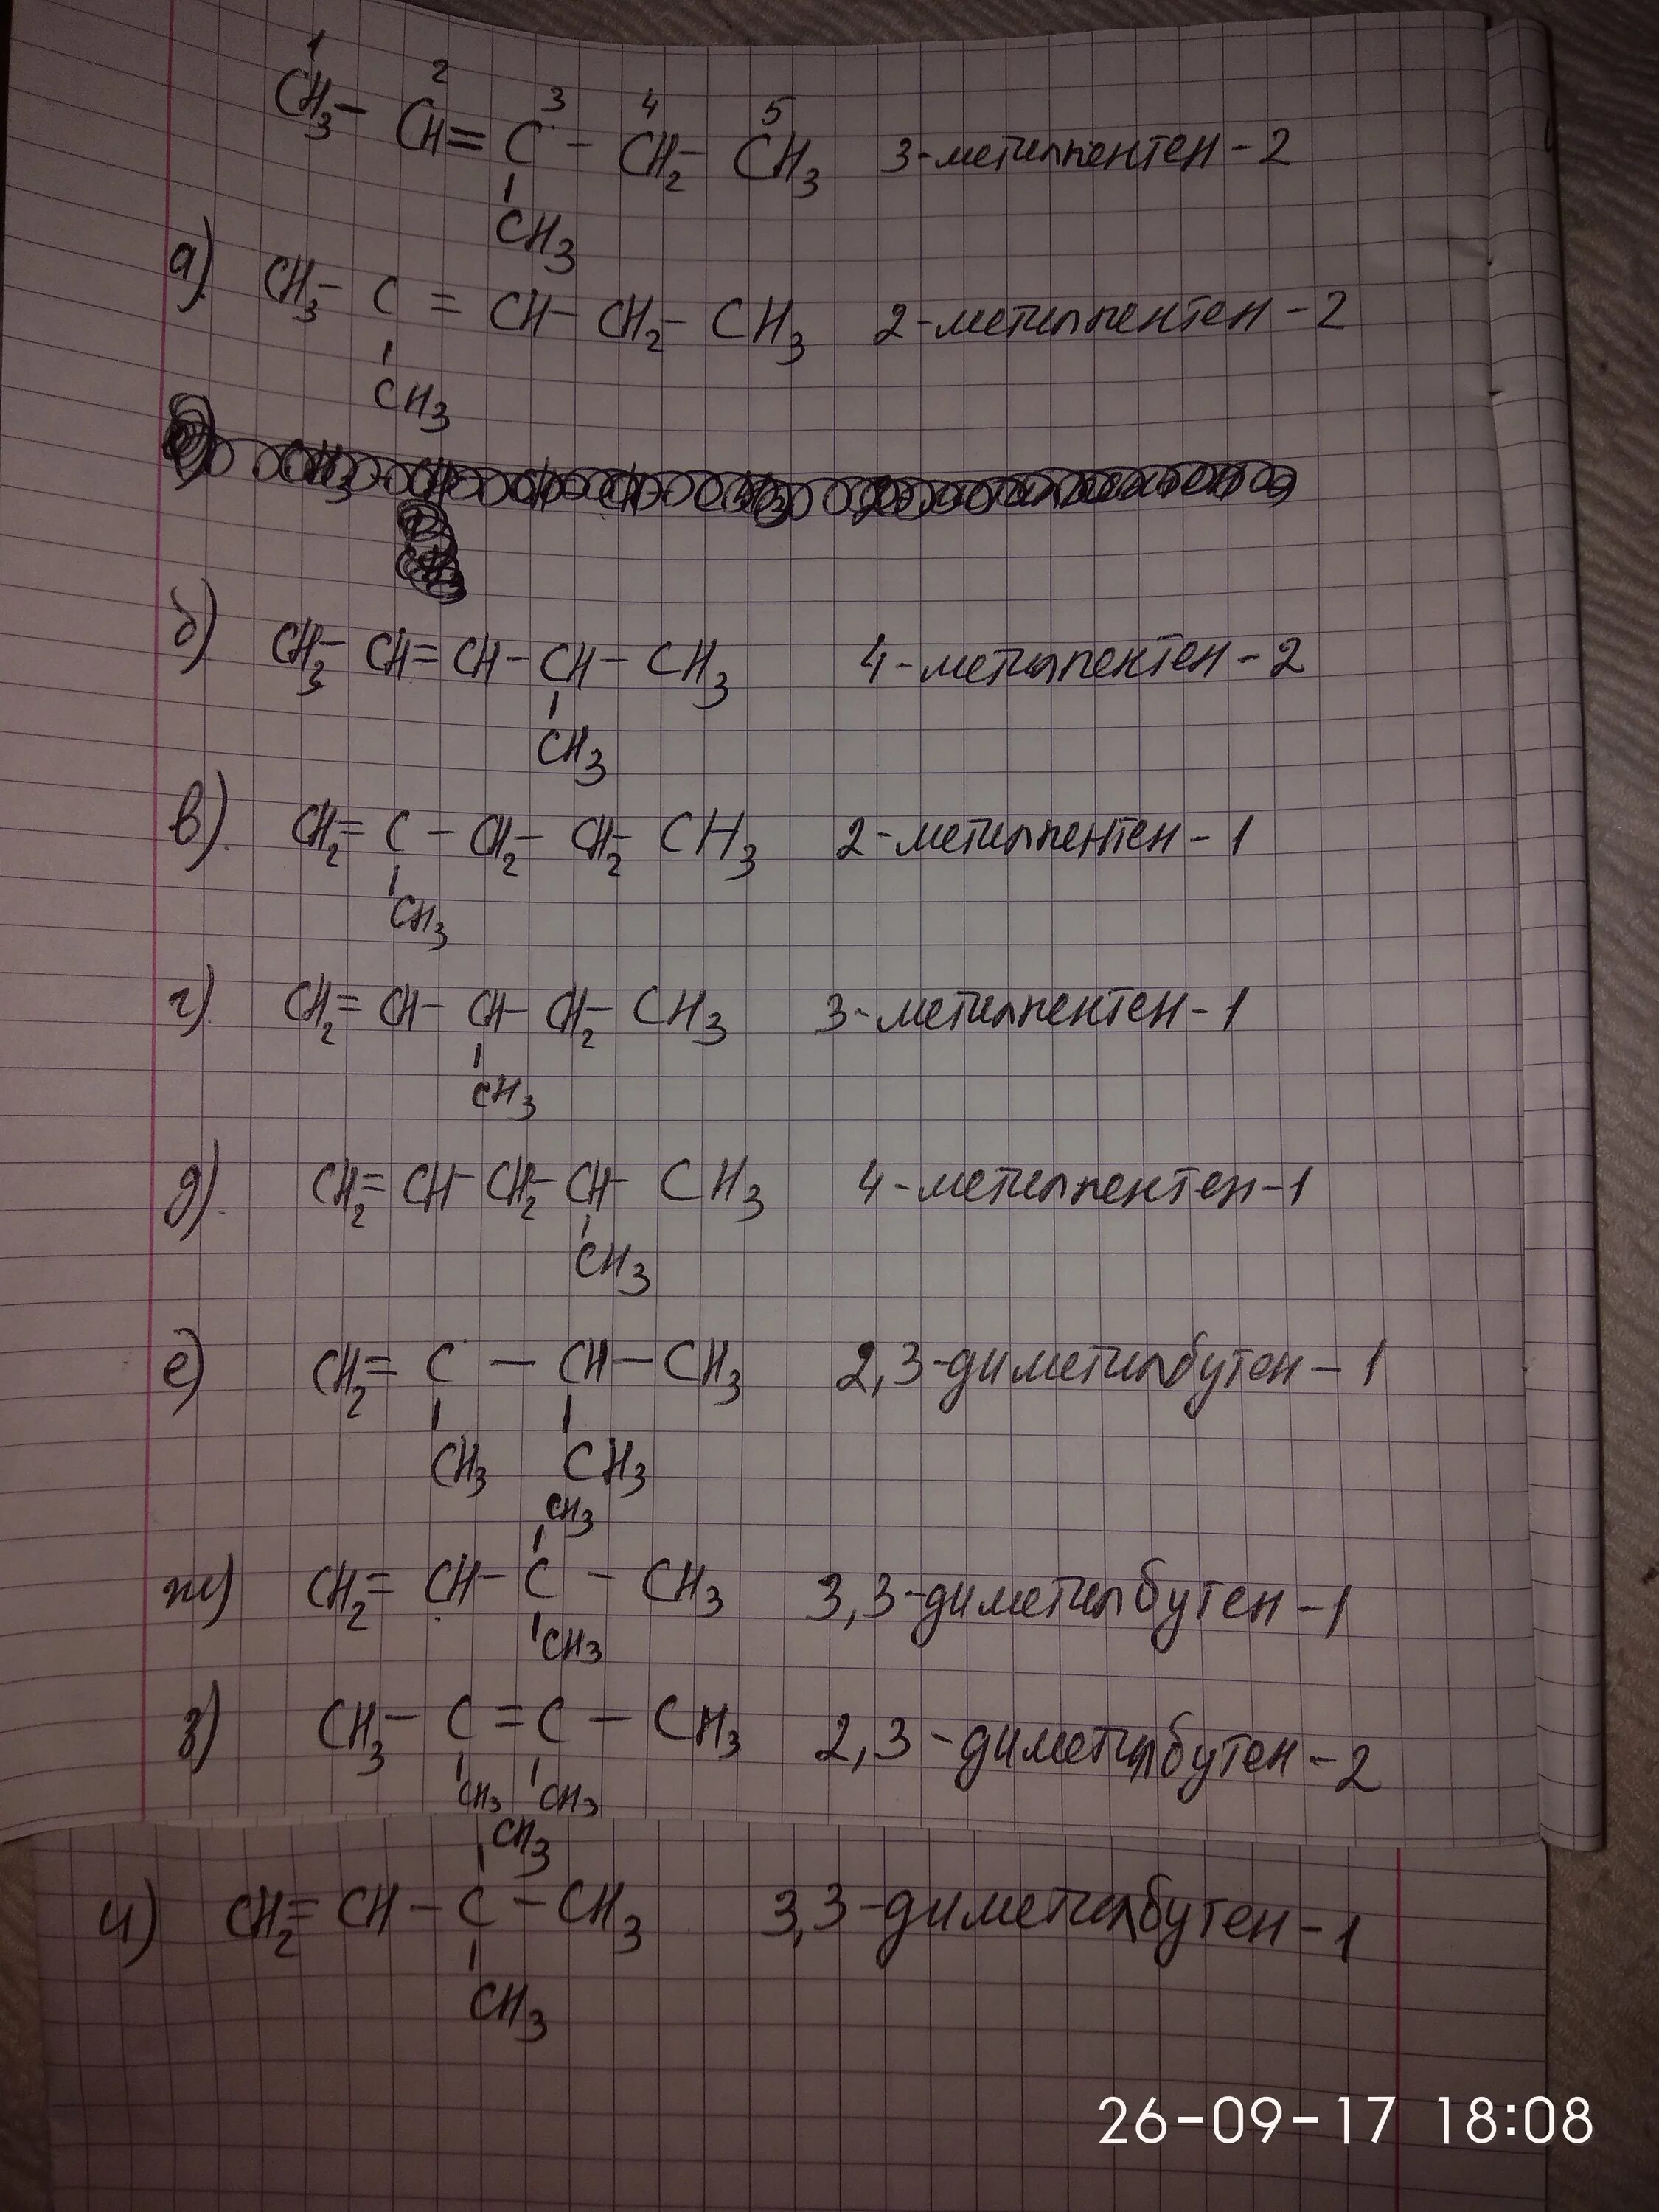 1 2 3 4 5
CH3 - CH = C - CH2 - CH3 3-метилпентен-2
CH3
а) CH3 - C = CH - CH2 - CH3 2-метилпентен-2
CH3
б) CH3 - CH = CH - CH - CH3 4-метилпентен-2
CH3
в) CH2 = C - CH2 - CH2 - CH3 2-метилпентен-1
CH3
г) CH2 = CH - CH - CH2 - CH3 3-метилпентен-1
CH3
д) CH2 = CH - CH2 - CH - CH3 4-метилпентен-1
CH3
е) CH2 = C - CH - CH3 2,3-диметилбутен-1
CH3 CH3
CH3
ж) CH2 = CH - C - CH3 3,3-диметилбутен-1
CH3
з) CH3 - C = C - CH3 2,3-диметилбутен-2
CH3 CH3
CH3
и) CH2 = CH - C - CH3 3,3-диметилбутен-1
CH3
26-09-17 18:08